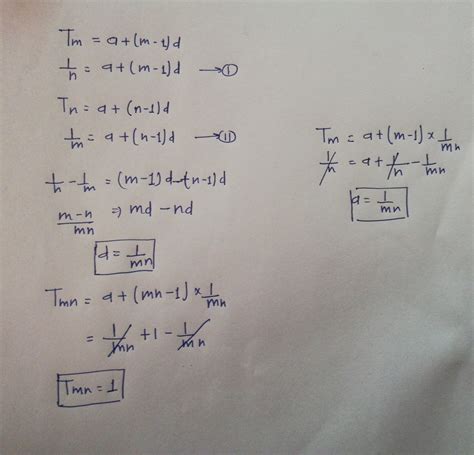 Tm = a+(m-1)d
1/n = a+(m-1)d → (i)
Tn = a+(n-1)d
1/m = a+(n-1)d → (ii)
1/n - 1/m = (m-1)d-(n-1)d
m-n/mn => md-nd
d = 1/mn
Tmn = a+(mn-1)×1/mn
= 1/mn + 1 - 1/mn
Tmn = 1
Tm = a+(m-1)×1/mn
1/n = a+1/n-1/mn
a = 1/mn